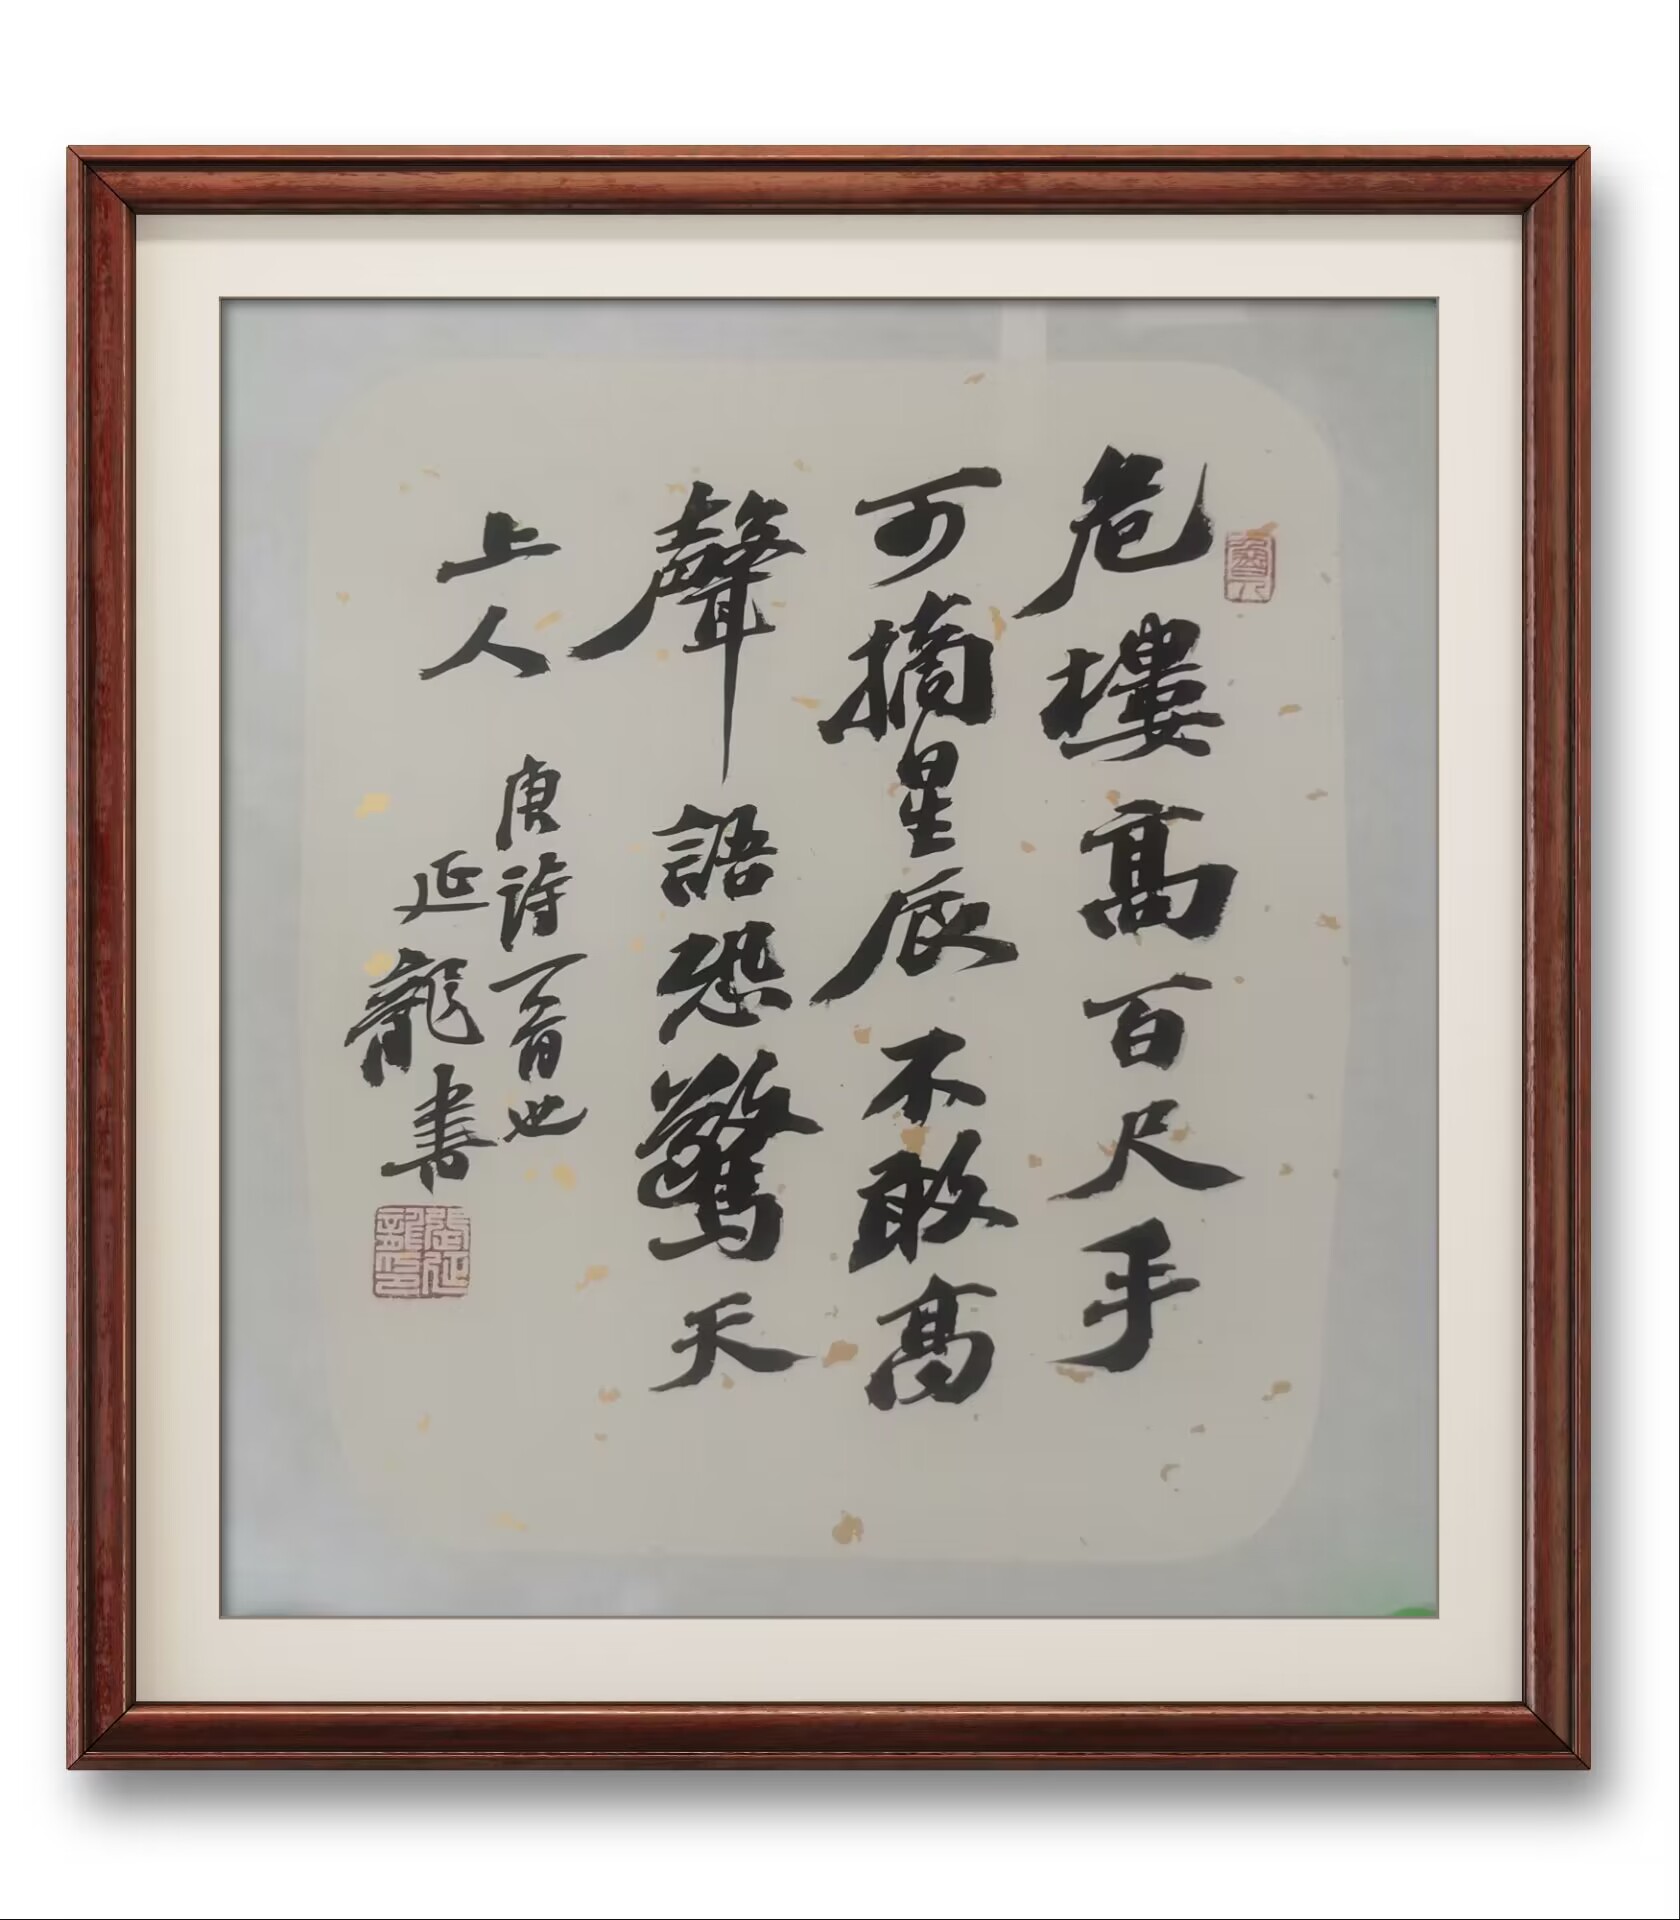 危樓高百尺手
可摘星辰不敢高
聲語恐驚天
上人 唐詩一首也
延龍書